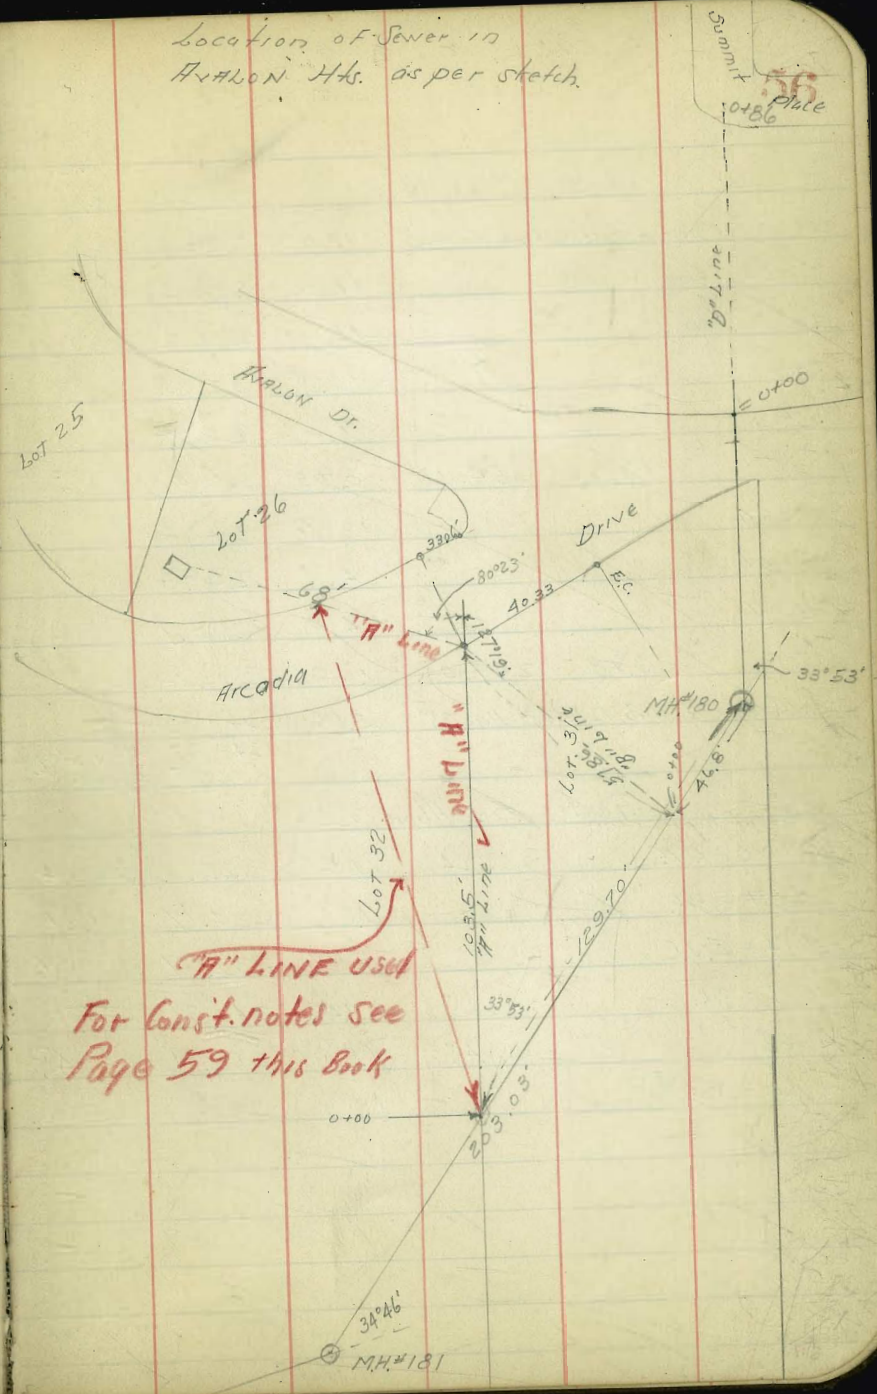 Location of Sewer in
AVALON Hts. as per sketch.
56
Summit
Place
0+86
"D" Line
= 0+00
AVALON Dr.
Lot 25
LOT 26
33.06'
Drive
80°23'
40.33
E.C.
127°19'
68'
"A" Line
Arcadia
33°53'
M.H.#180
"A" Line
Lot 31
"B" Line
= 0+00
46.8'
LOT 32
103.5'
"A" Line
129.70'
"A" LINE used
For Const. notes see
Page 59 this Book
33°53'
0+00
203.03'
34°46'
M.H.#181